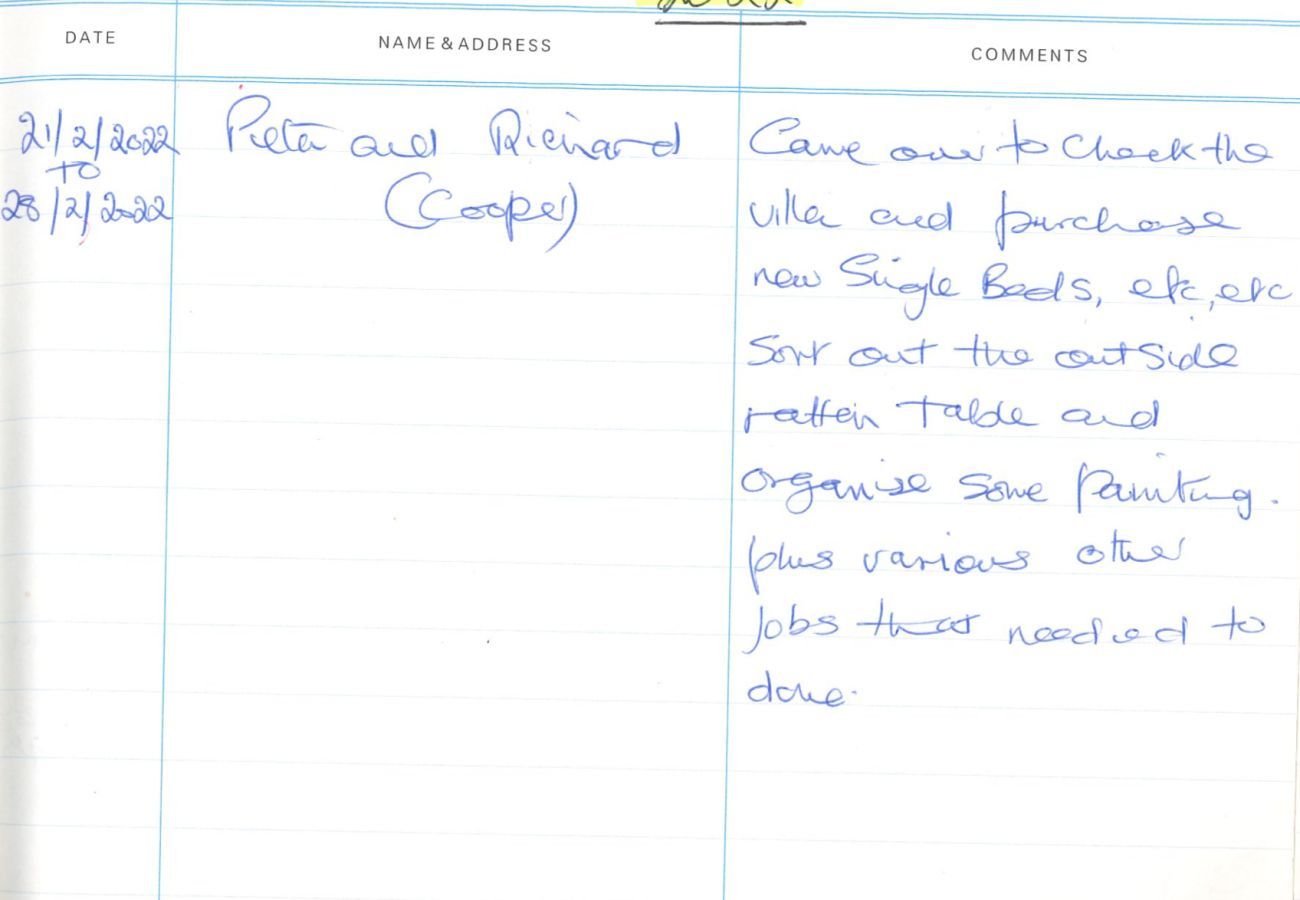 DATE NAME & ADDRESS COMMENTS
21/2/2022 Pieta and Richard Came over to Check the
TO
28/2/2022 (Cooper) villa and purchase
new Single Beds, etc, etc
Sort out the outside
ratten Table and
organise some Painting.
plus various other
Jobs that needed to
done.